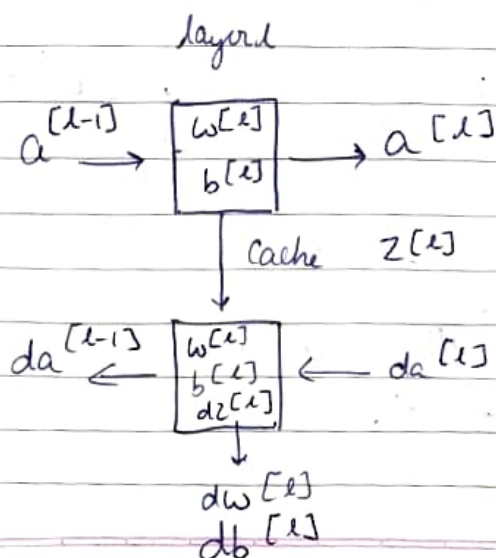 layer l
a[l-1] → w[l] → a[l]
b[l]
Cache z[l]
da[l-1] ← w[l] ← da[l]
b[l]
dz[l]
dw[l]
db[l]